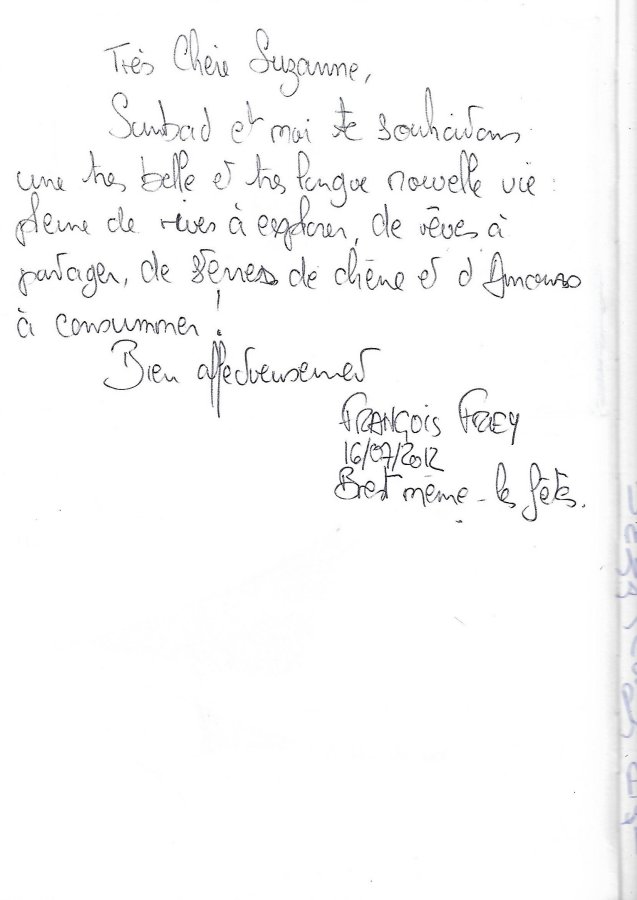 Très Chère Suzanne,
Sunbad et moi te souhaitons
une très belle et très longue nouvelle vie :
pleine de rives à explorer, de rêves à
partager, de de chêne et d'Amours
à consummer !
Bien affectueusement
FRANÇOIS FREY
16/07/2012
Brest même - les fêtes.